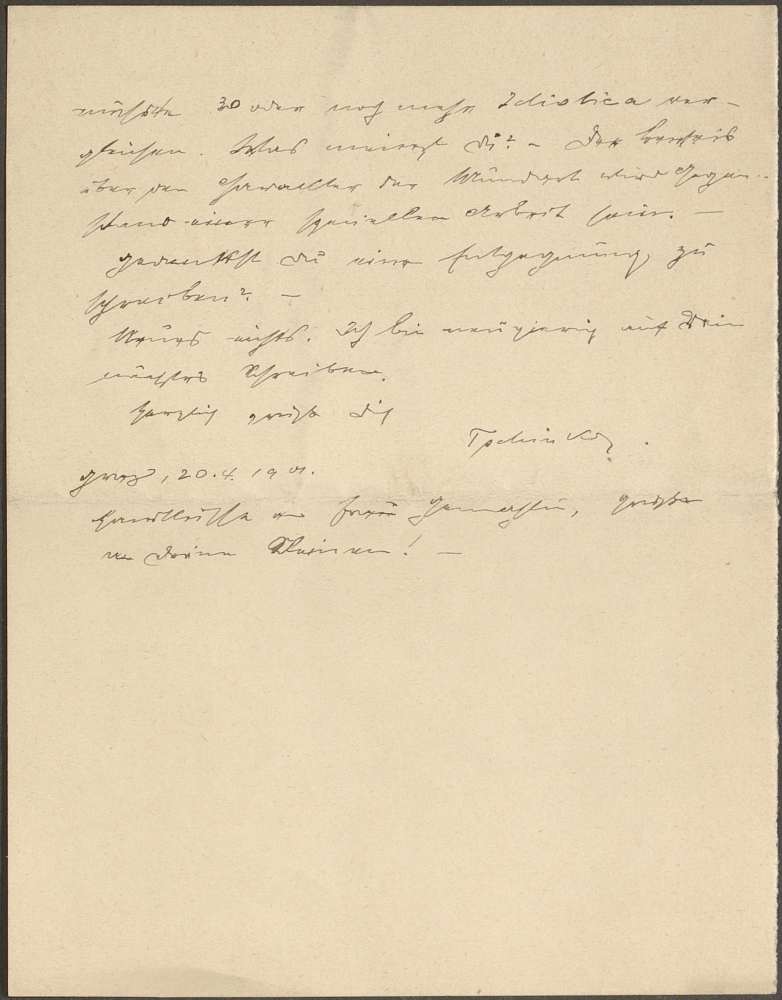 müßte 30 oder noch mehr Idiotica ver-
gleichen. Was meinst Du? – Der Beweis
über den Charakter der Mundart wird Gegen-
stand einer speziellen Arbeit sein. –
Gedenkst Du eine Entgegnung zu
schreiben? –
Neues nichts. Ich bin neugierig auf Dein
nächstes Schreiben.
Herzlich grüßt Dich
Tschinkel.
Graz, 20.4.1901.
Handküsse an Frau Gemahlin, Grüße
an Deine Kleinen! –